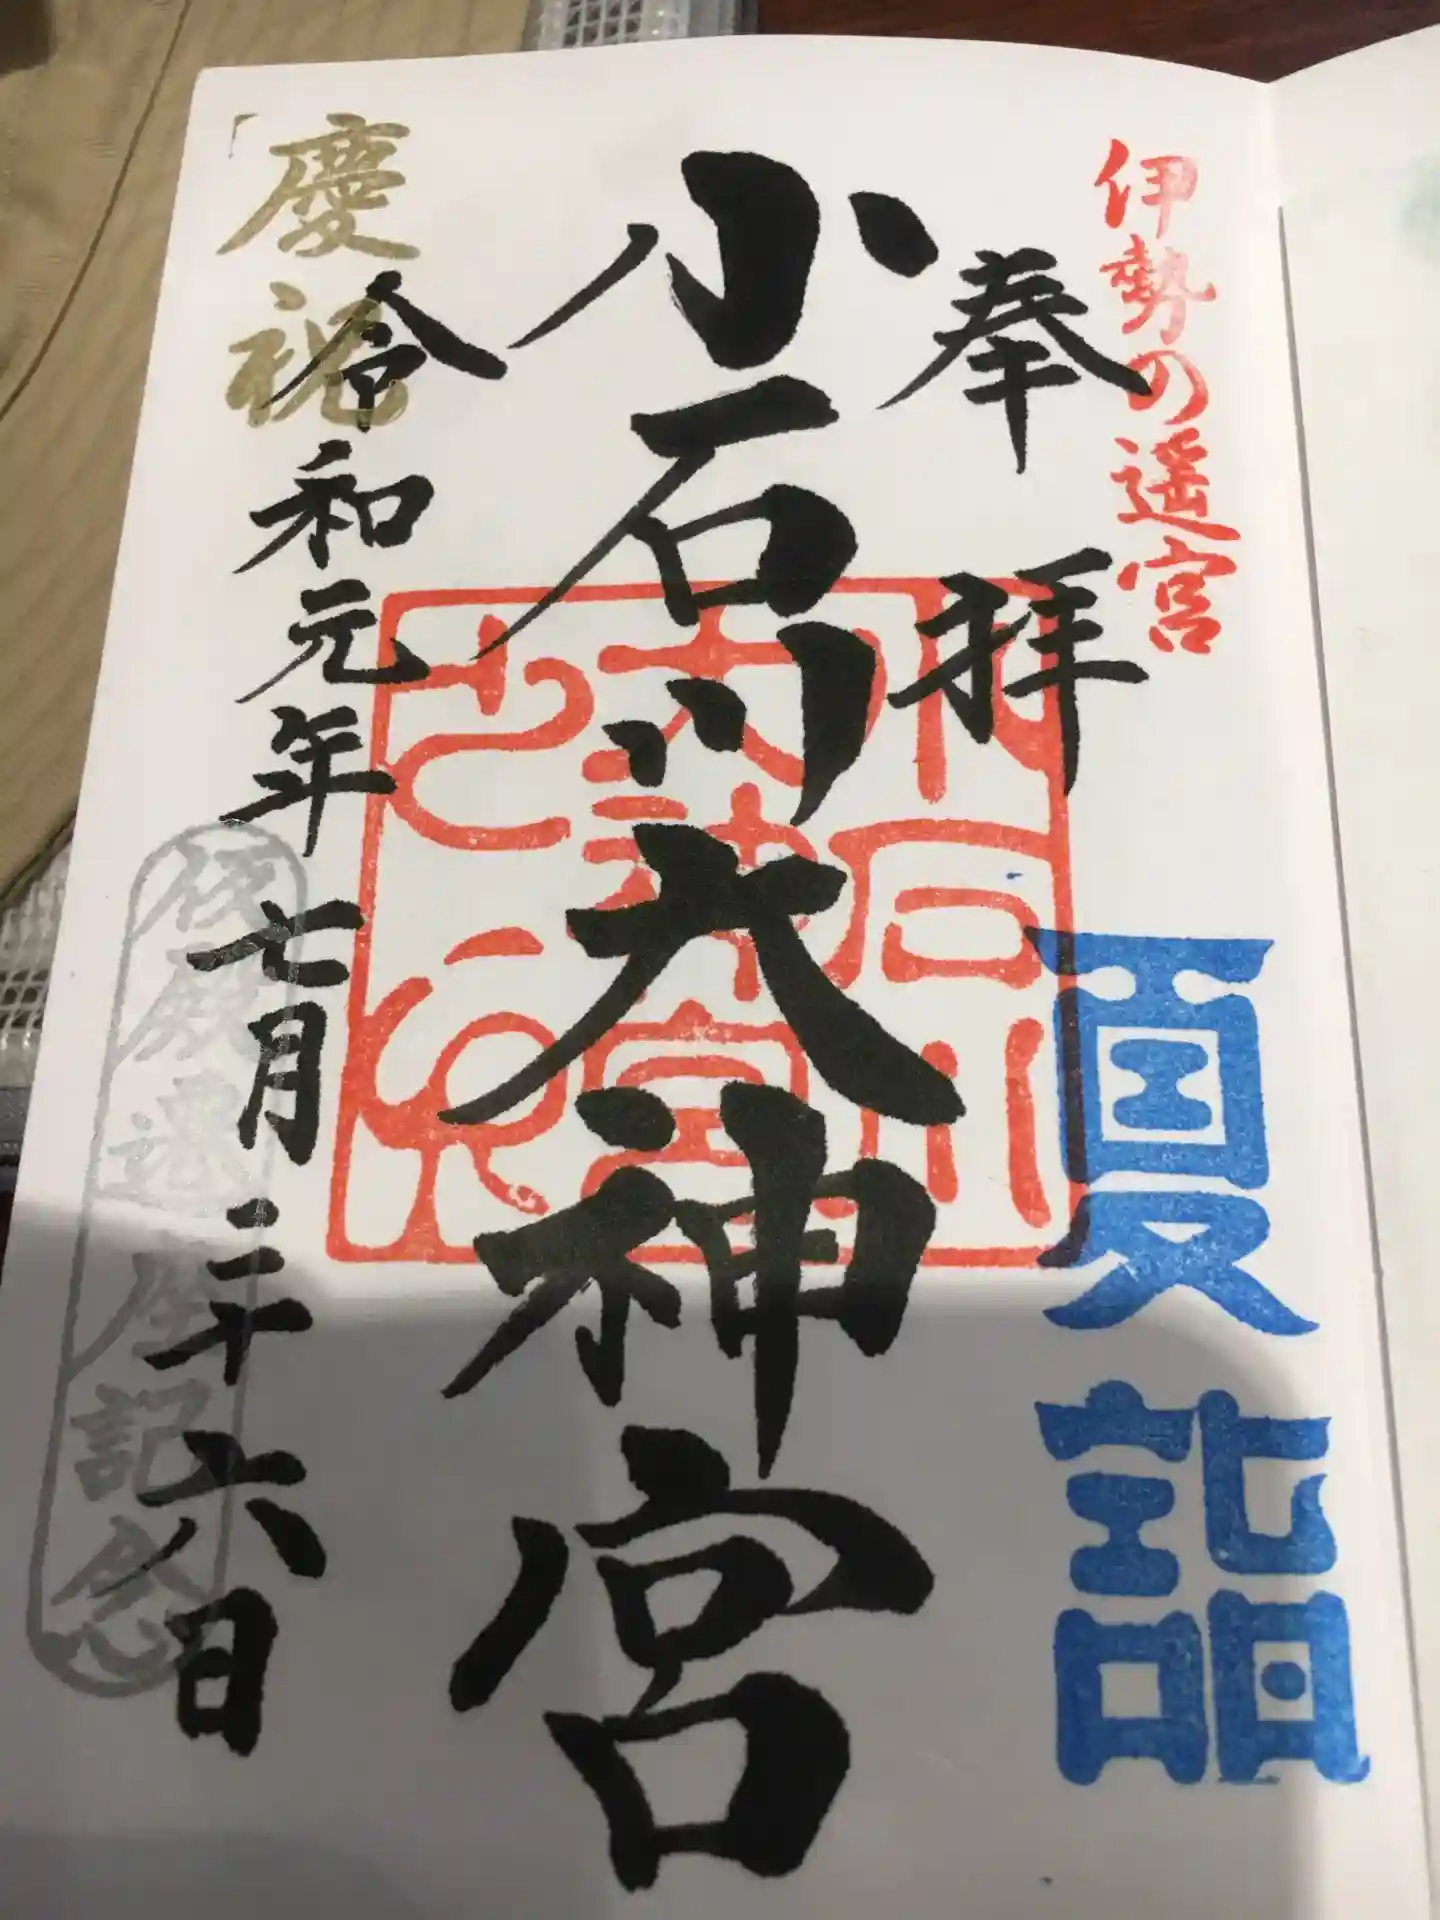 伊勢の遥宮
奉拝
夏詣
小石川大神宮
小石川
大神宮
之印
慶祝
令和元年七月二十六日
仮殿遷座記念